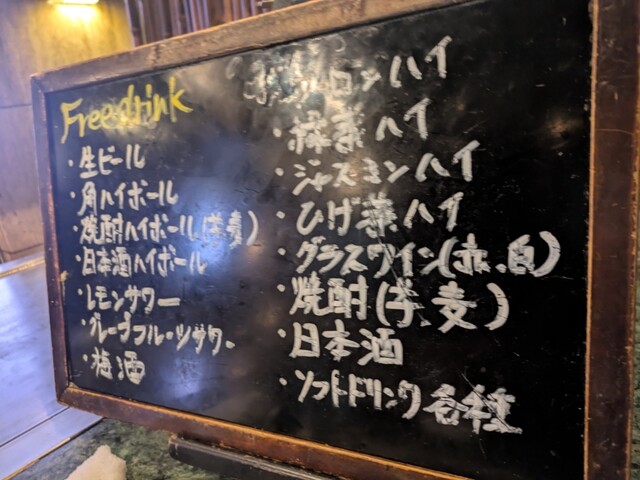 Freedrink
・生ビール
・角ハイボール
・焼酎ハイボール(芋麦)
・日本酒ハイボール
・レモンサワー
・グレープフルーツサワー
・梅酒
ロンハイ
・緑茶ハイ
・ジャスミンハイ
・ひげ茶ハイ
・グラスワイン(赤、白)
・焼酎(芋、麦)
・日本酒
・ソフトドリンク各種